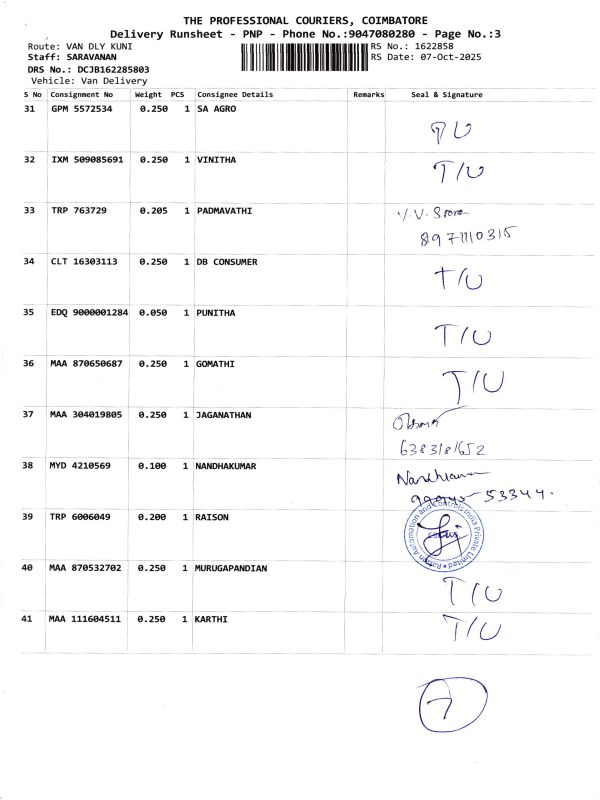 THE PROFESSIONAL COURIERS, COIMBATORE
Delivery Runsheet - PNP - Phone No.:9047080280 - Page No.:3
Route: VAN DLY KUNI RS No.: 1622858
Staff: SARAVANAN RS Date: 07-Oct-2025
DRS No.: DCJB162285803
Vehicle: Van Delivery
S No Consignment No Weight PCS Consignee Details Remarks Seal & Signature
31 GPM 5572534 0.250 1 SA AGRO
32 IXM 509085691 0.250 1 VINITHA T/U
33 TRP 763729 0.205 1 PADMAVATHI
8971110315
34 CLT 16303113 0.250 1 DB CONSUMER T/U
35 EDQ 9000001284 0.050 1 PUNITHA T/U
36 MAA 870650687 0.250 1 GOMATHI T/U
37 MAA 304019805 0.250 1 JAGANATHAN
38 MYD 4210569 0.100 1 NANDHAKUMAR
53344.
39 TRP 6006049 0.200 1 RAISON
Automation and Controls India Private Limited
40 MAA 870532702 0.250 1 MURUGAPANDIAN T/U
41 MAA 111604511 0.250 1 KARTHI T/U
7